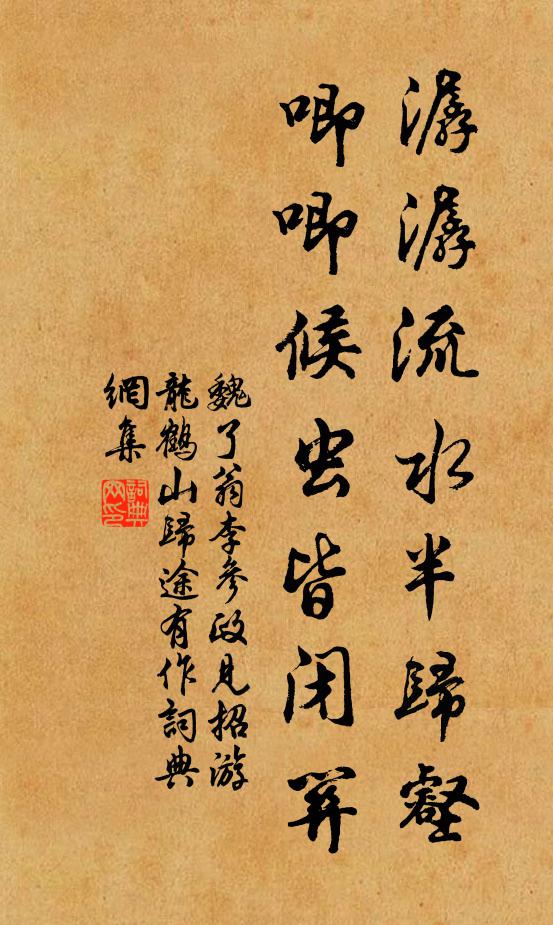 潺潺流水半歸壑
唧唧候虫皆閉關
魏了翁李參政見招游
龍鶴山歸途有作詞典
網集
詞典
网印